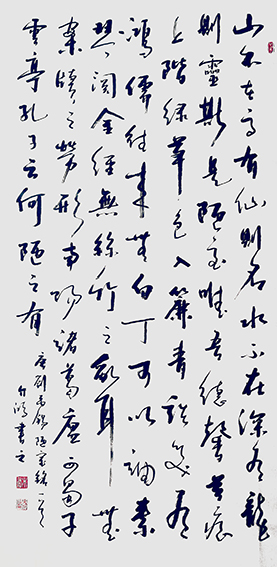 山不在高有仙则名水不在深有龙
则灵斯是陋室唯吾德馨苔痕
上阶绿草色入帘青谈笑有
鸿儒往来無白丁可以调素
琴阅金經無絲竹之乱耳無
案牍之劳形南阳諸葛庐西蜀子
雲亭孔子云何陋之有
唐劉禹錫陋室銘一首
书之